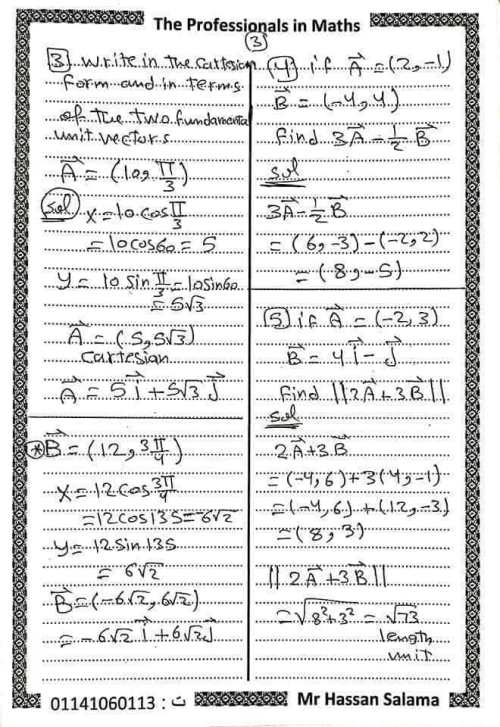 The Professionals in Maths
(3)
[3] write in the cartesian
form and in terms
of the two fundamental
unit vectors
A⃗ = (10, π/3)
sol X = 10 cos π/3
= 10 cos 60 = 5
y = 10 sin π/3 = 10 sin 60
= 5√3
A⃗ = (5, 5√3)
cartesian
A⃗ = 5 i⃗ + 5√3 j⃗
* B⃗ = (12, 3π/4)
X = 12 cos 3π/4
= 12 cos 135 = -6√2
y = 12 sin 135
= 6√2
B⃗ = (-6√2, 6√2)
= -6√2 i⃗ + 6√2 j⃗
(4) if A⃗ = (2, -1)
B⃗ = (-4, 4)
find 3A⃗ - 1/2 B⃗
sol
3A⃗ - 1/2 B⃗
= (6, -3) - (-2, 2)
= (8, -5)
(5) if A⃗ = (-2, 3)
B⃗ = 4 i⃗ - j⃗
find ||2A⃗ + 3B⃗||
sol
2A⃗ + 3B⃗
= (-4, 6) + 3(4, -1)
= (-4, 6) + (12, -3)
= (8, 3)
||2A⃗ + 3B⃗||
= √8² + 3² = √73
length
unit
01141060113 : ت
Mr Hassan Salama